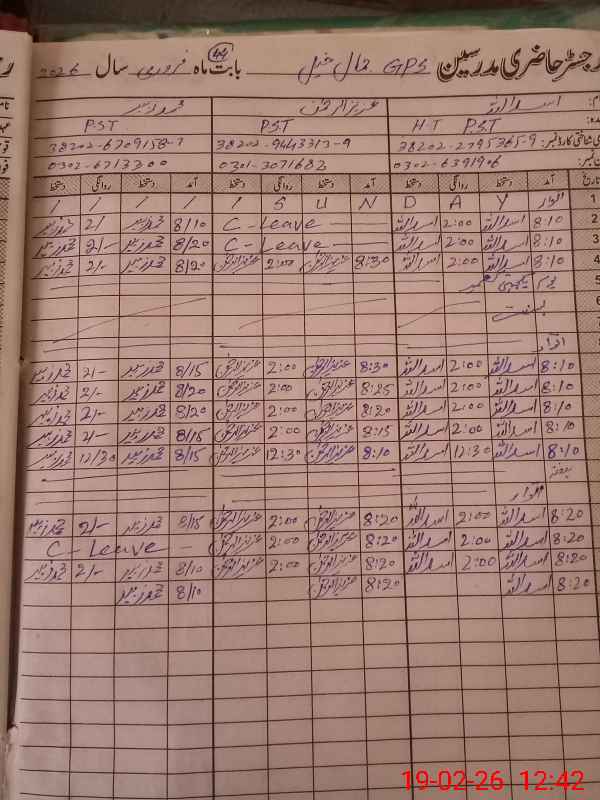 رجسٹر حاضری مدرسین GPS جمال خیل بابت ماہ فروری سال 2026
اسد اللہ عزیز الرحمٰن محمد زبیر
H-T P.S.T P.S.T P.S.T
38202-2795365-9 38202-9443313-9 38202-6709158-7
0302-6391906 0301-3071683 0302-6713300
تاریخ آمد دستخط روانگی دستخط آمد دستخط روانگی دستخط آمد دستخط روانگی دستخط
1 اتوار S U N D A Y / / / / /
2 8:10 اسد اللہ 2:00 اسد اللہ C-Leave 8/10 محمد زبیر 2/- محمد زبیر
3 8:10 اسد اللہ 2:00 اسد اللہ C-Leave 8/20 محمد زبیر 2/- محمد زبیر
4 8:10 اسد اللہ 2:00 اسد اللہ 8:30 عزیز الرحمٰن 2:00 عزیز الرحمٰن 8/20 محمد زبیر 2/- محمد زبیر
5 یوم یکجہتی کشمیر
6 بسنت
اتوار
8:10 اسد اللہ 2:00 اسد اللہ 8:30 عزیز الرحمٰن 2:00 عزیز الرحمٰن 8/15 محمد زبیر 2/- محمد زبیر
8:10 اسد اللہ 2:00 اسد اللہ 8:25 عزیز الرحمٰن 2:00 عزیز الرحمٰن 8/20 محمد زبیر 2/- محمد زبیر
8:10 اسد اللہ 2:00 اسد اللہ 8:20 عزیز الرحمٰن 2:00 عزیز الرحمٰن 8/20 محمد زبیر 2/- محمد زبیر
8:10 اسد اللہ 2:00 اسد اللہ 8:15 عزیز الرحمٰن 2:00 عزیز الرحمٰن 8/15 محمد زبیر 2/- محمد زبیر
8:10 اسد اللہ 12:30 اسد اللہ 8:10 عزیز الرحمٰن 12:30 عزیز الرحمٰن 8/15 محمد زبیر 12/30 محمد زبیر
ہفتہ
اتوار
8:20 اسد اللہ 2:00 اسد اللہ 8:20 عزیز الرحمٰن 2:00 عزیز الرحمٰن 8/15 محمد زبیر 2/- محمد زبیر
8:20 اسد اللہ 2:00 اسد اللہ 8:20 عزیز الرحمٰن 2:00 عزیز الرحمٰن C-Leave
8:20 اسد اللہ 2:00 اسد اللہ 8:20 عزیز الرحمٰن 2:00 عزیز الرحمٰن 8/10 محمد زبیر 2/- محمد زبیر
8:20 اسد اللہ 8:20 عزیز الرحمٰن 8/10 محمد زبیر
19-02-26 12:42